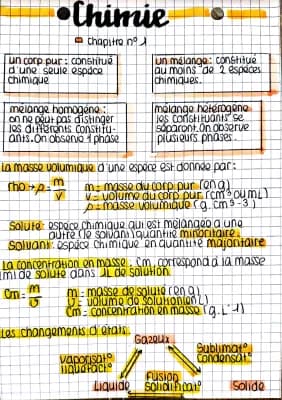 Chimie
Chapitre n° 1
un corp pur : constitué
d'une seule espèce
chimique
un mélange : constitué
au moins de 2 espèces
chimiques.
mélange homogène :
on ne peut pas distinger
les différents constitu-
ants. On observe 1 phase
mélange hétérogène
les constituants se
séparont. On observe
plusieurs phases.
La masse volumique d'une espèce est donnée par :
rho → ρ = m/v
m = masse du corp pur (en g)
v = volume du corp pur (cm³ ou mL)
ρ = masse volumique (g.cm^-3)
Soluté : espèce chimique qui est mélangée à une
autre (le solvant) quantité minoritaire.
Solvant : espèce chimique en quantité majoritaire
La concentration en masse : Cm, correspond à la masse
(m) de soluté dans 1L de solution
Cm = m/v
m = masse de soluté (en g)
v = volume de solution (en L)
Cm = concentration en masse (g.L^-1)
Les changements d'états :
Gazeux
Vaporisat°
liquéfact°
Sublimat°
Condensat°
Fusion
Solidificat°
Liquide
Solide